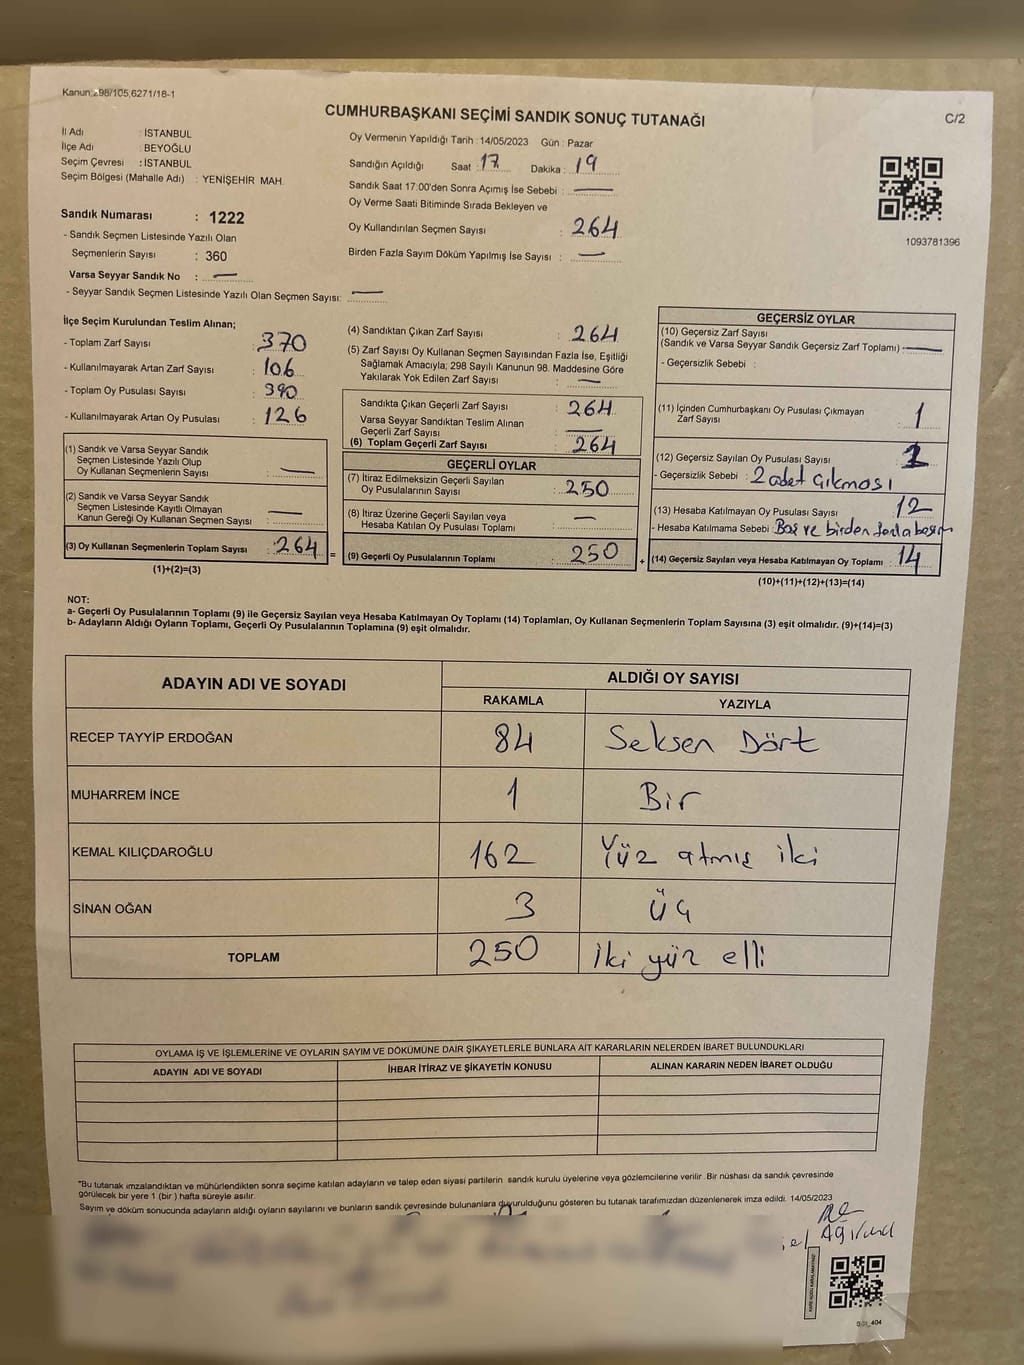 Kanun:298/105,6271/18-1
CUMHURBAŞKANI SEÇİMİ SANDIK SONUÇ TUTANAĞI
C/2
İl Adı : İSTANBUL
İlçe Adı : BEYOĞLU
Seçim Çevresi : İSTANBUL
Seçim Bölgesi (Mahalle Adı) : YENİŞEHİR MAH.
Oy Vermenin Yapıldığı Tarih : 14/05/2023 Gün : Pazar
Sandığın Açıldığı Saat : 17 Dakika : 19
Sandık Saat 17:00'den Sonra Açımış İse Sebebi : —
Oy Verme Saati Bitiminde Sırada Bekleyen ve
Oy Kullandırılan Seçmen Sayısı : 264
Birden Fazla Sayım Döküm Yapılmış İse Sayısı : —
1093781396
Sandık Numarası : 1222
- Sandık Seçmen Listesinde Yazılı Olan
Seçmenlerin Sayısı : 360
Varsa Seyyar Sandık No : —
- Seyyar Sandık Seçmen Listesinde Yazılı Olan Seçmen Sayısı: —
İlçe Seçim Kurulundan Teslim Alınan;
- Toplam Zarf Sayısı : 370
- Kullanılmayarak Artan Zarf Sayısı : 106
- Toplam Oy Pusulası Sayısı : 390
- Kullanılmayarak Artan Oy Pusulası : 126
(1) Sandık ve Varsa Seyyar Sandık
Seçmen Listesinde Yazılı Olup
Oy Kullanan Seçmenlerin Sayısı : —
(2) Sandık ve Varsa Seyyar Sandık
Seçmen Listesinde Kayıtlı Olmayan
Kanun Gereği Oy Kullanan Seçmen Sayısı : —
(3) Oy Kullanan Seçmenlerin Toplam Sayısı : 264
(1)+(2)=(3)
(4) Sandıktan Çıkan Zarf Sayısı : 264
(5) Zarf Sayısı Oy Kullanan Seçmen Sayısından Fazla İse, Eşitliği
Sağlamak Amacıyla; 298 Sayılı Kanunun 98. Maddesine Göre
Yakılarak Yok Edilen Zarf Sayısı : —
Sandıkta Çıkan Geçerli Zarf Sayısı : 264
Varsa Seyyar Sandıktan Teslim Alınan
Geçerli Zarf Sayısı : —
(6) Toplam Geçerli Zarf Sayısı : 264
GEÇERLİ OYLAR
(7) İtiraz Edilmeksizin Geçerli Sayılan
Oy Pusulalarının Sayısı : 250
(8) İtiraz Üzerine Geçerli Sayılan veya
Hesaba Katılan Oy Pusulası Toplamı : —
= (9) Geçerli Oy Pusulalarının Toplamı : 250
GEÇERSİZ OYLAR
(10) Geçersiz Zarf Sayısı
(Sandık ve Varsa Seyyar Sandık Geçersiz Zarf Toplamı) : —
- Geçersizlik Sebebi :
(11) İçinden Cumhurbaşkanı Oy Pusulası Çıkmayan
Zarf Sayısı : 1
(12) Geçersiz Sayılan Oy Pusulası Sayısı : 1
- Geçersizlik Sebebi : 2 adet çıkması
(13) Hesaba Katılmayan Oy Pusulası Sayısı : 12
- Hesaba Katılmama Sebebi : Boş ve birden fazla basım
+ (14) Geçersiz Sayılan veya Hesaba Katılmayan Oy Toplamı : 14
(10)+(11)+(12)+(13)=(14)
NOT:
a- Geçerli Oy Pusulalarının Toplamı (9) ile Geçersiz Sayılan veya Hesaba Katılmayan Oy Toplamı (14) Toplamları, Oy Kullanan Seçmenlerin Toplam Sayısına (3) eşit olmalıdır. (9)+(14)=(3)
b- Adayların Aldığı Oyların Toplamı, Geçerli Oy Pusulalarının Toplamına (9) eşit olmalıdır.
ADAYIN ADI VE SOYADI
ALDIĞI OY SAYISI
RAKAMLA YAZIYLA
RECEP TAYYİP ERDOĞAN 84 Seksen Dört
MUHARREM İNCE 1 Bir
KEMAL KILIÇDAROĞLU 162 Yüz atmış iki
SİNAN OĞAN 3 Üç
TOPLAM 250 İki yüz elli
OYLAMA İŞ VE İŞLEMLERİNE VE OYLARIN SAYIM VE DÖKÜMÜNE DAİR ŞİKAYETLERLE BUNLARA AİT KARARLARIN NELERDEN İBARET BULUNDUKLARI
ADAYIN ADI VE SOYADI İHBAR İTİRAZ VE ŞİKAYETİN KONUSU ALINAN KARARIN NEDEN İBARET OLDUĞU
"Bu tutanak imzalandıktan ve mühürlendikten sonra seçime katılan adayların ve talep eden siyasi partilerin sandık kurulu üyelerine veya gözlemcilerine verilir. Bir nüshası da sandık çevresinde
görülecek bir yere 1 (bir ) hafta süreyle asılır.
Sayım ve döküm sonucunda adayların aldığı oyların sayılarını ve bunların sandık çevresinde bulunanlara duyurulduğunu gösteren bu tutanak tarafımızdan düzenlenerek imza edildi. 14/05/2023